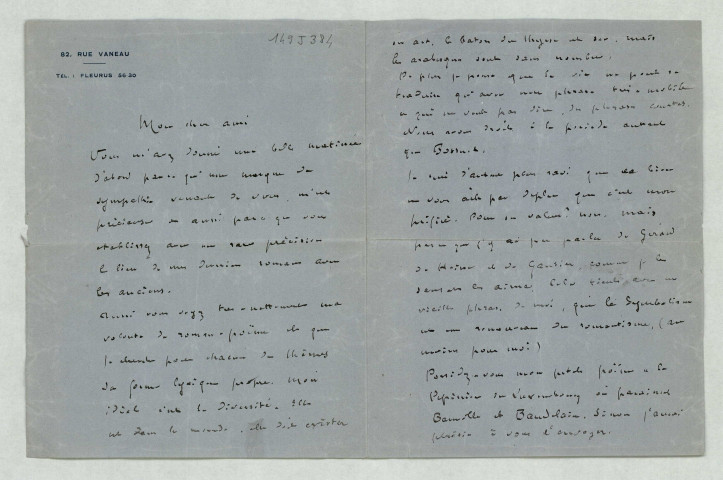 149 J 384
82, RUE VANEAU
TEL. : FLEURUS 56-30
Mon cher ami
Vous m'avez donné une belle matinée
d'abord parce qu'une marque de
sympathie venant de vous, m'est
précieuse et aussi parce que vous
établissez avec une rare précision
le lien de mes derniers romans avec
les anciens.
Aussi vous voyez très nettement ma
volonté de roman-poëme et que
je cherche pour chacun des thèmes
sa forme lyrique propre. Mon
idéal c'est la diversité. Elle
est dans le monde, elle doit exister
en art, le bâton du thyrse est sec, mais
les arabesques sont sans nombre.
De plus je pense que la vie ne peut se
traduire qu'avec une phrase très mobile
ce qui ne veut pas dire, des phrases courtes.
Nous avons droit à la période autant
que Bossuet.
Je suis d'autant plus ravi que ce livre
ne vous ait pas déplu que c'est mon
préféré. Pour sa valeur? non. Mais
parce que j'y ai pu parler de Gérard
de Heine et de Gautier, comme je le
pensais les aimer. Cela
vieille phrase de moi, que le Symbolisme
est un renouveau du romantisme, (au
moins pour moi)
Possédez-vous mon petit poëme à la
Pépinière du Luxembourg où paraissent
Banville et Baudelaire. Sinon j'aurai
plaisir à vous l'envoyer.